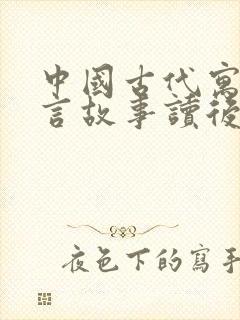 中國古代寓
言故事讀後
夜色下的寫手